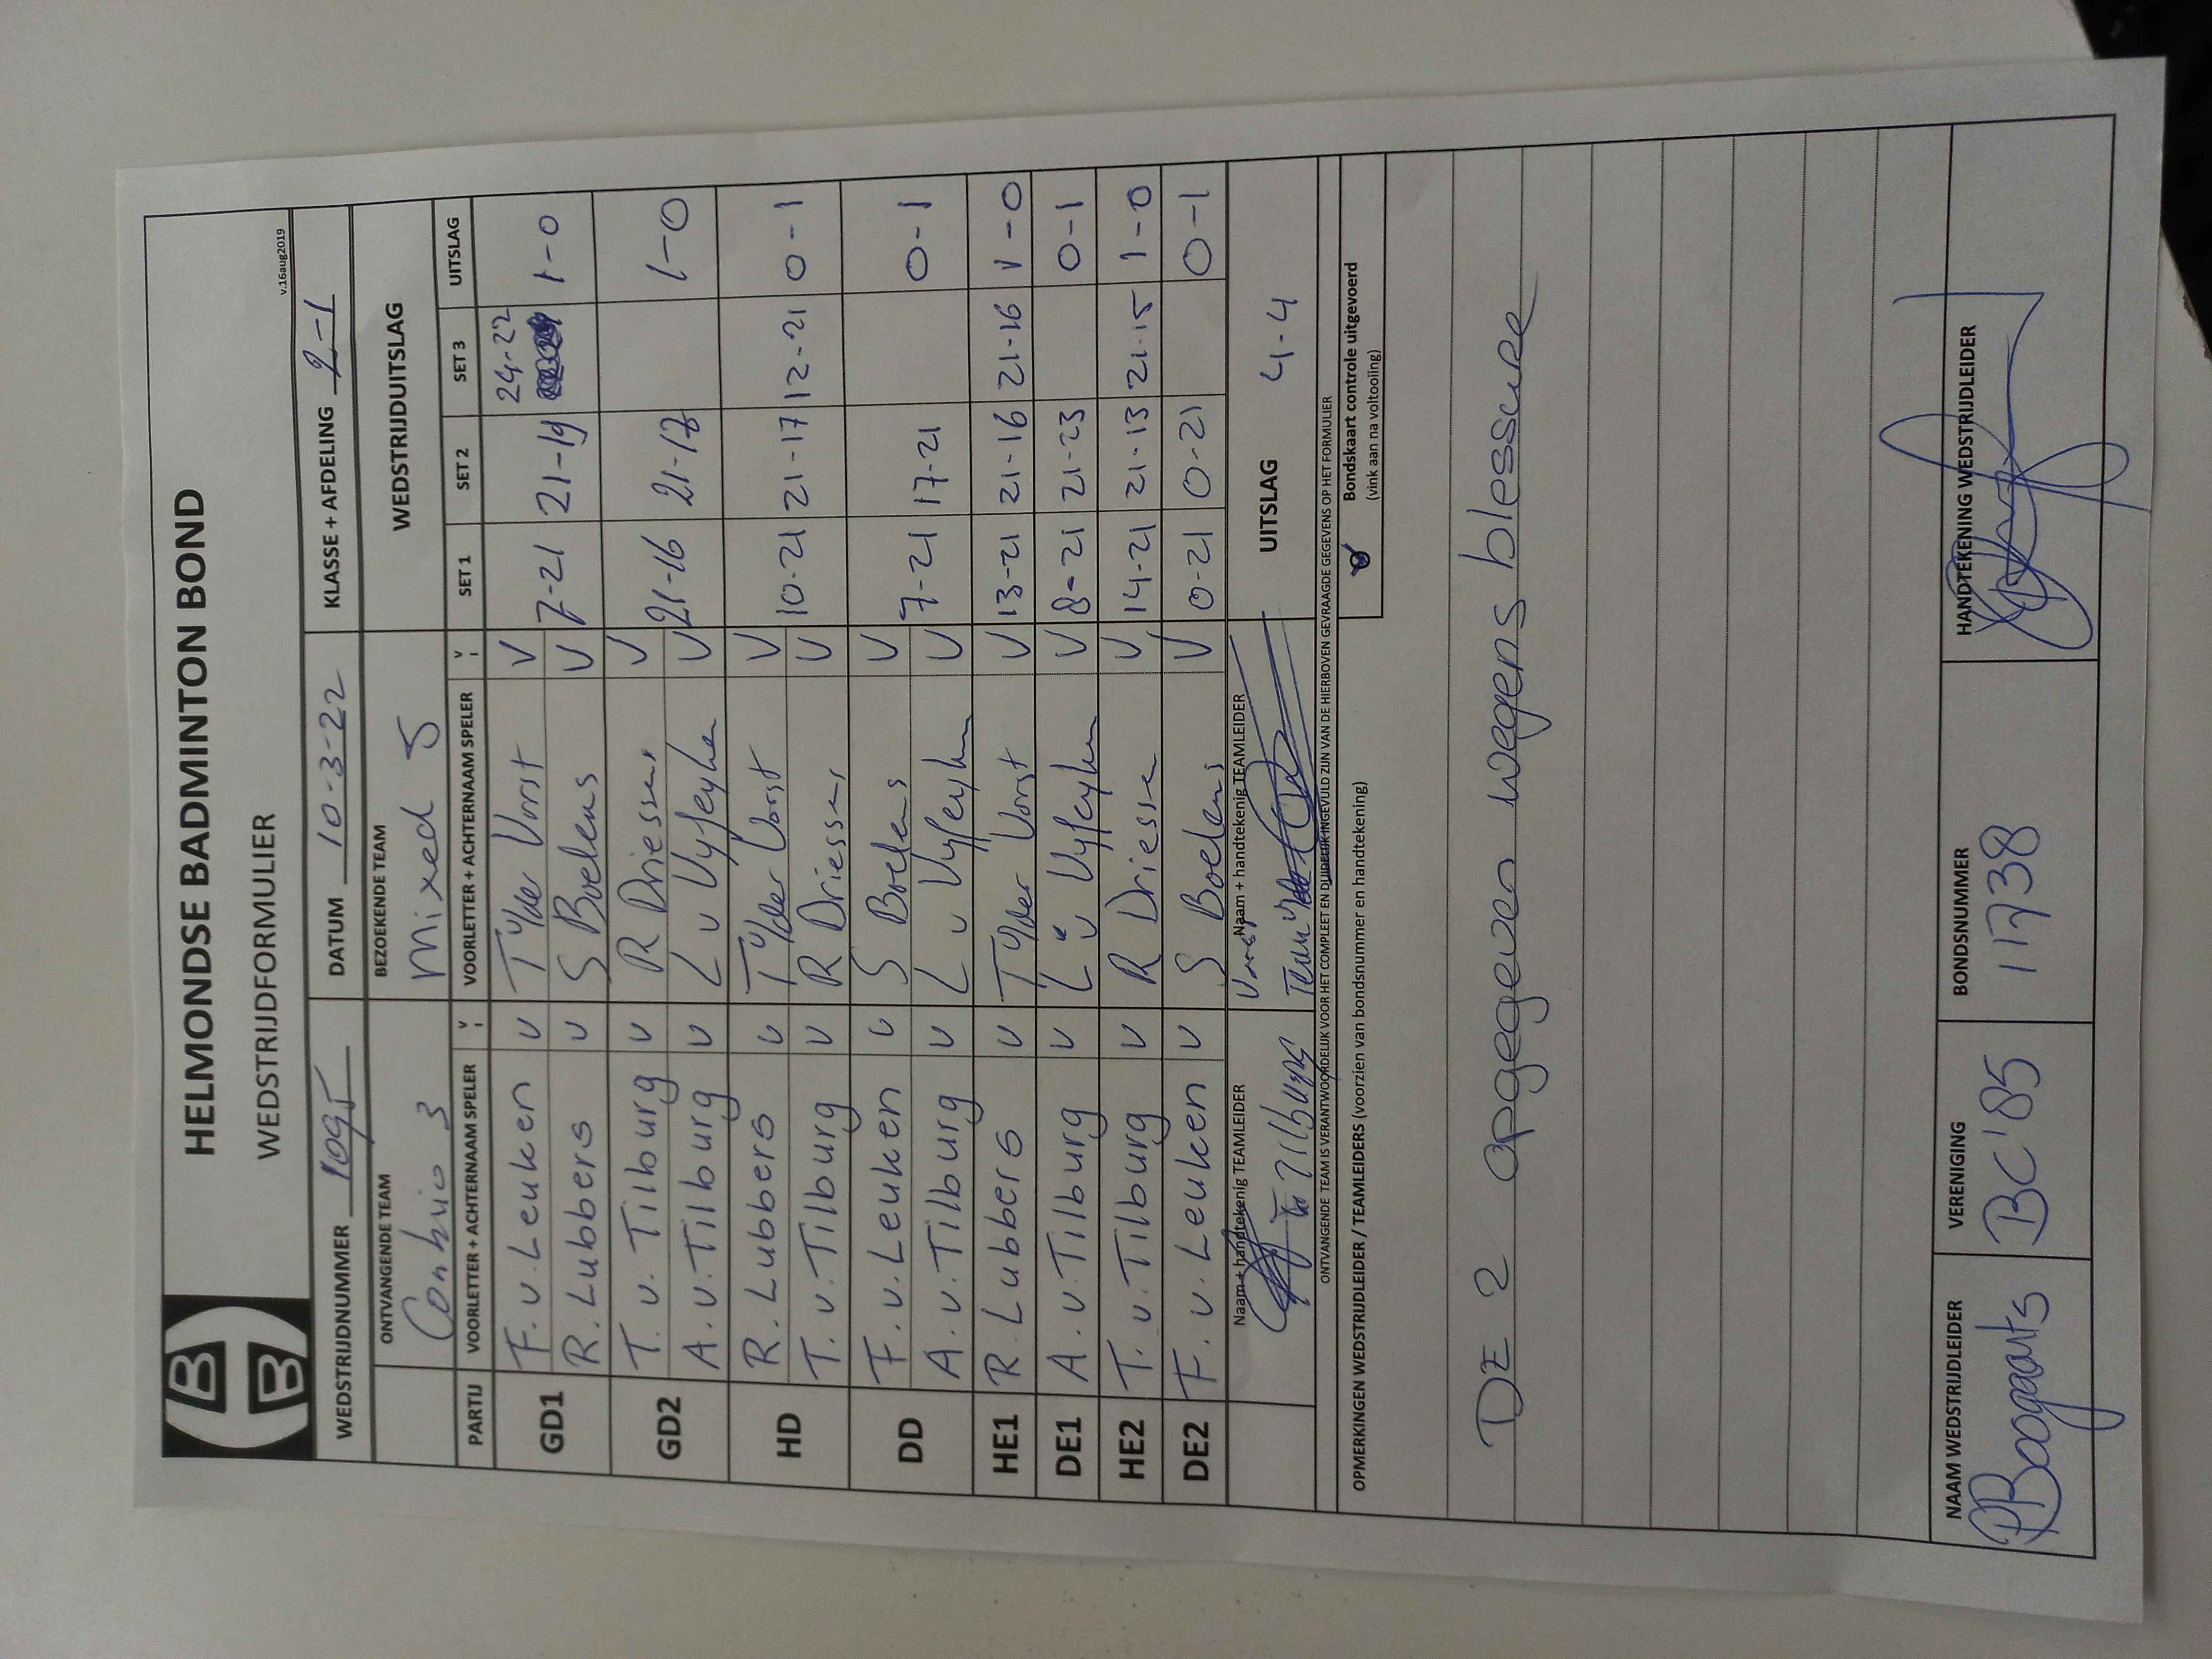 HELMONDSE BADMINTON BOND
WEDSTRIJDFORMULIER
v.16aug2019
WEDSTRIJDNUMMER 1095 DATUM 10-3-22 KLASSE + AFDELING 2-1
ONTVANGENDE TEAM BEZOEKENDE TEAM WEDSTRIJDUITSLAG
3 Mixed 5
PARTIJ VOORLETTER + ACHTERNAAM SPELER V VOORLETTER + ACHTERNAAM SPELER V SET 1 SET 2 SET 3 UITSLAG
GD1 F. v. Leuken v T vd Vorst V 24-22
R. Lubbers v S Boelens V 7-21 21-19 1-0
GD2 T. v. Tilburg v R Driessen V
A. v. Tilburg v L v V 21-16 21-17 1-0
HD R. Lubbers v T vd Vorst V
T. v. Tilburg v R Driessen V 10-21 21-17 12-21 0-1
DD F. v. Leuken v S Boelens V
A. v. Tilburg v L v V 7-21 17-21 0-1
HE1 R. Lubbers v T vd Vorst V 13-21 21-16 21-16 1-0
DE1 A. v. Tilburg v L v V 8-21 21-23 0-1
HE2 T. v. Tilburg v R Driessen V 14-21 21-13 21-15 1-0
DE2 F. v. Leuken v S Boelens V 0-21 0-21 0-1
Naam + handtekenig TEAMLEIDER Naam + handtekenig TEAMLEIDER
v Tilburg UITSLAG 4-4
ONTVANGENDE TEAM IS VERANTWOORDELIJK VOOR HET COMPLEET EN DUIDELIJK INGEVULD ZIJN VAN DE HIERBOVEN GEVRAAGDE GEGEVENS OP HET FORMULIER
OPMERKINGEN WEDSTRIJDLEIDER / TEAMLEIDERS (voorzien van bondsnummer en handtekening)
Bondskaart controle uitgevoerd
(vink aan na voltooiing)
DE 2 opgegeven wegens blessure
NAAM WEDSTRIJDLEIDER VERENIGING BONDSNUMMER HANDTEKENING WEDSTRIJDLEIDER
P Boogaarts BC '85 11738